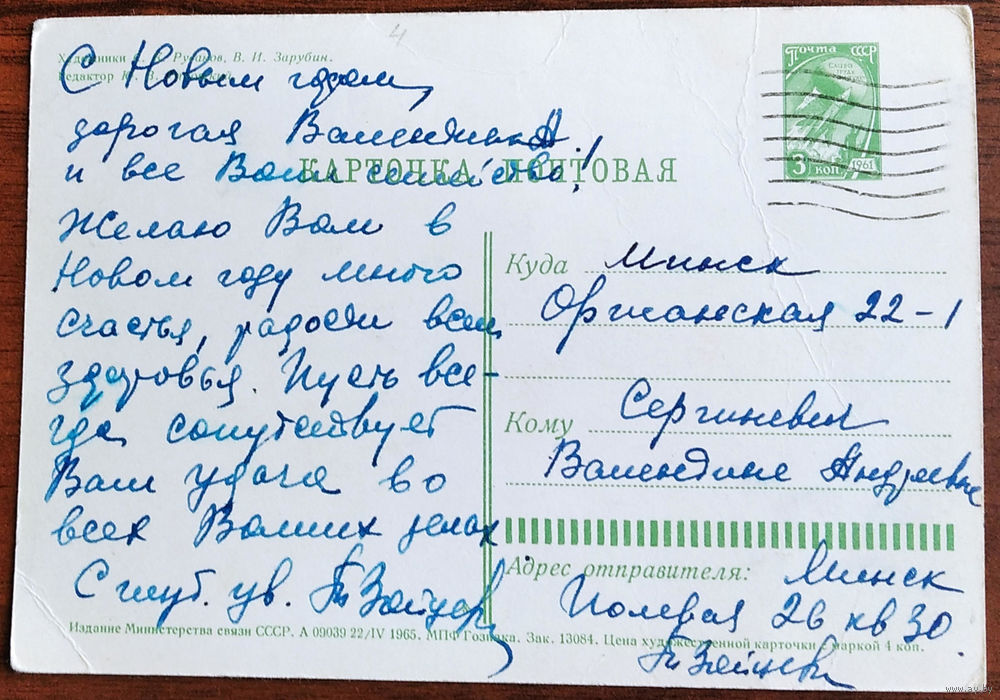 Художники Русаков, В. И. Зарубин.
Редактор
С Новым годом,
дорогая Валентина А.
и все Ваше семейство!
КАРТОЧКА ПОЧТОВАЯ
Желаю Вам в
Новом году много
счастья, радости всем,
здоровья. Пусть все-
гда сопутствует
Вам удача во
всех Ваших делах
С глуб. ув. Зайцев
Почта СССР
3 коп 1961
Куда Минск
Оршанская 22-1
Кому Сергиневич
Валентине Андреевне
Адрес отправителя: Минск
Полевая 26 кв 30.
Зайцев
Издание Министерства связи СССР. А 09039 22/IV 1965. МПФ Гознака. Зак. 13084. Цена художественной карточки с маркой 4 коп.
4
www.ay.by